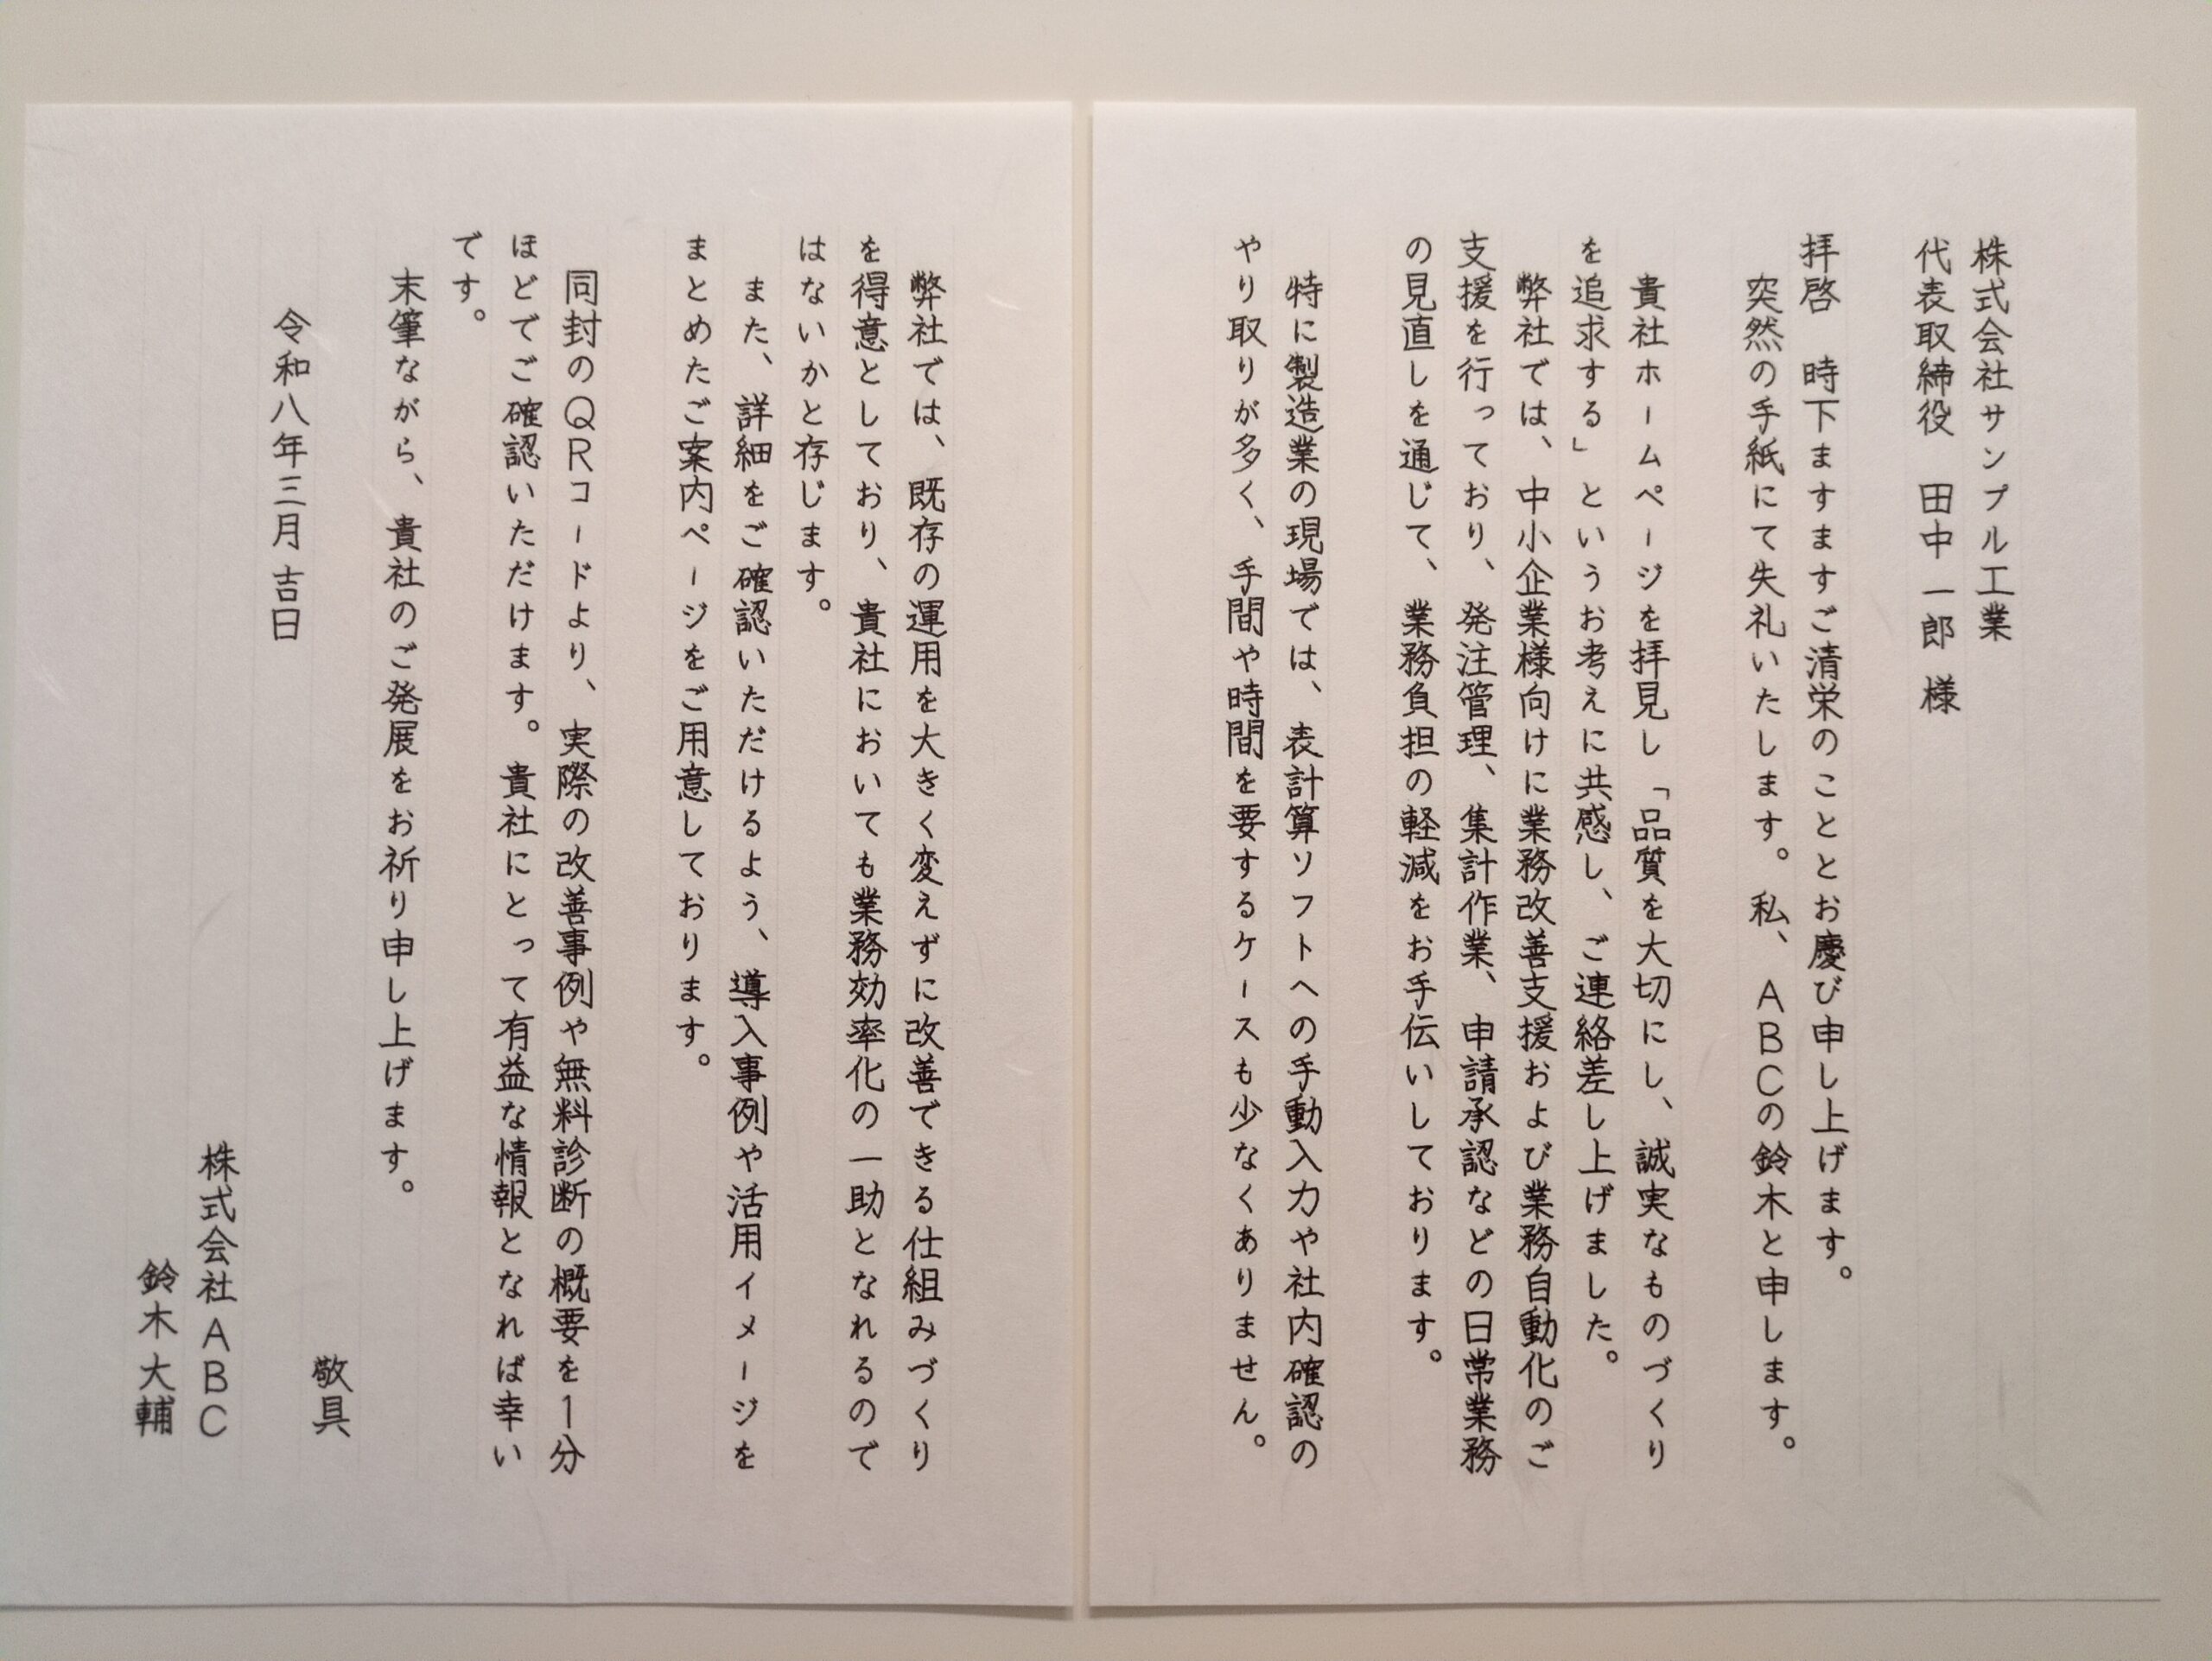 株式会社サンプル工業
代表取締役　田中一郎 様
拝啓　時下ますますご清栄のこととお慶び申し上げます。
突然の手紙にて失礼いたします。私、ABCの鈴木と申します。
貴社ホームページを拝見し「品質を大切にし、誠実なものづくり
を追求する」というお考えに共感し、ご連絡差し上げました。
弊社では、中小企業様向けに業務改善支援および業務自動化のご
支援を行っており、発注管理、集計作業、申請承認などの日常業務
の見直しを通じて、業務負担の軽減をお手伝いしております。
特に製造業の現場では、表計算ソフトへの手動入力や社内確認の
やり取りが多く、手間や時間を要するケースも少なくありません。
弊社では、既存の運用を大きく変えずに改善できる仕組みづくり
を得意としており、貴社においても業務効率化の一助となれるので
はないかと存じます。
また、詳細をご確認いただけるよう、導入事例や活用イメージを
まとめたご案内ページをご用意しております。
同封のQRコードより、実際の改善事例や無料診断の概要を1分
ほどでご確認いただけます。貴社にとって有益な情報となれば幸い
です。
末筆ながら、貴社のご発展をお祈り申し上げます。
敬具
令和八年三月 吉日
株式会社ABC
鈴木大輔